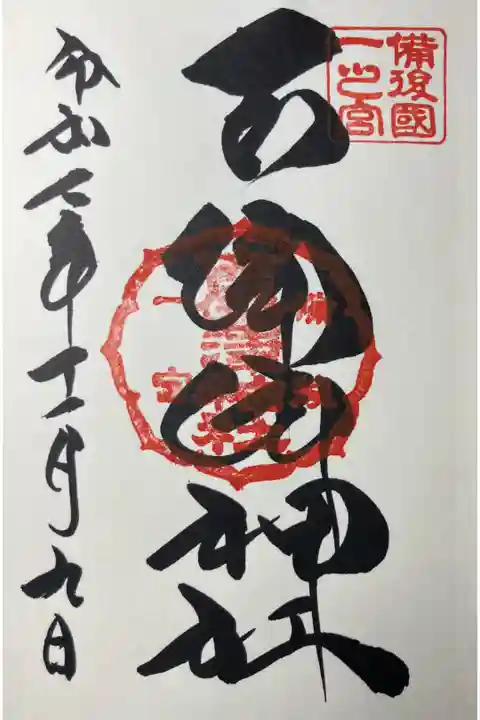 備後國
一之宮
吉備津神社
令和七年十一月九日